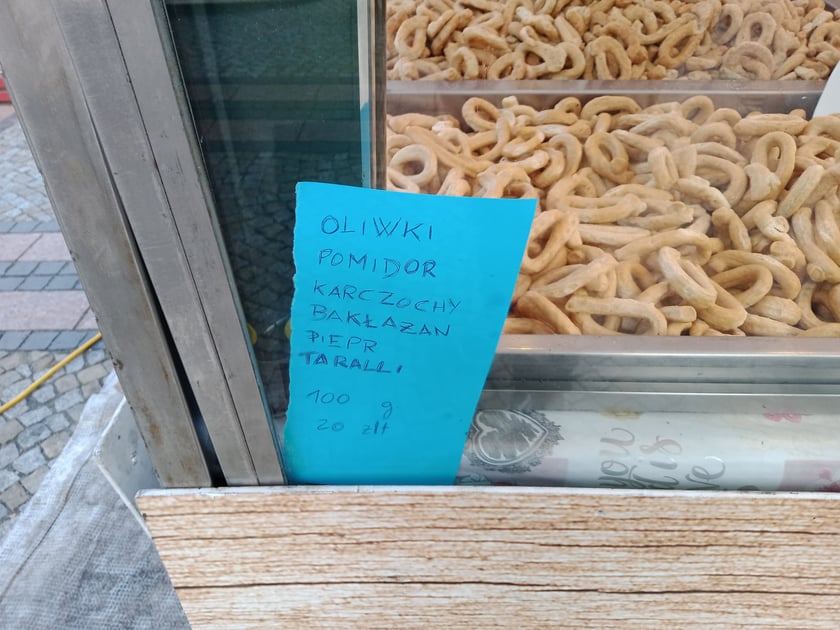 OLIWKI
POMIDOR
KARCZOCHY
BAKŁAZAN
PIEPR
TARALLI
100 g
20 złt
you
is